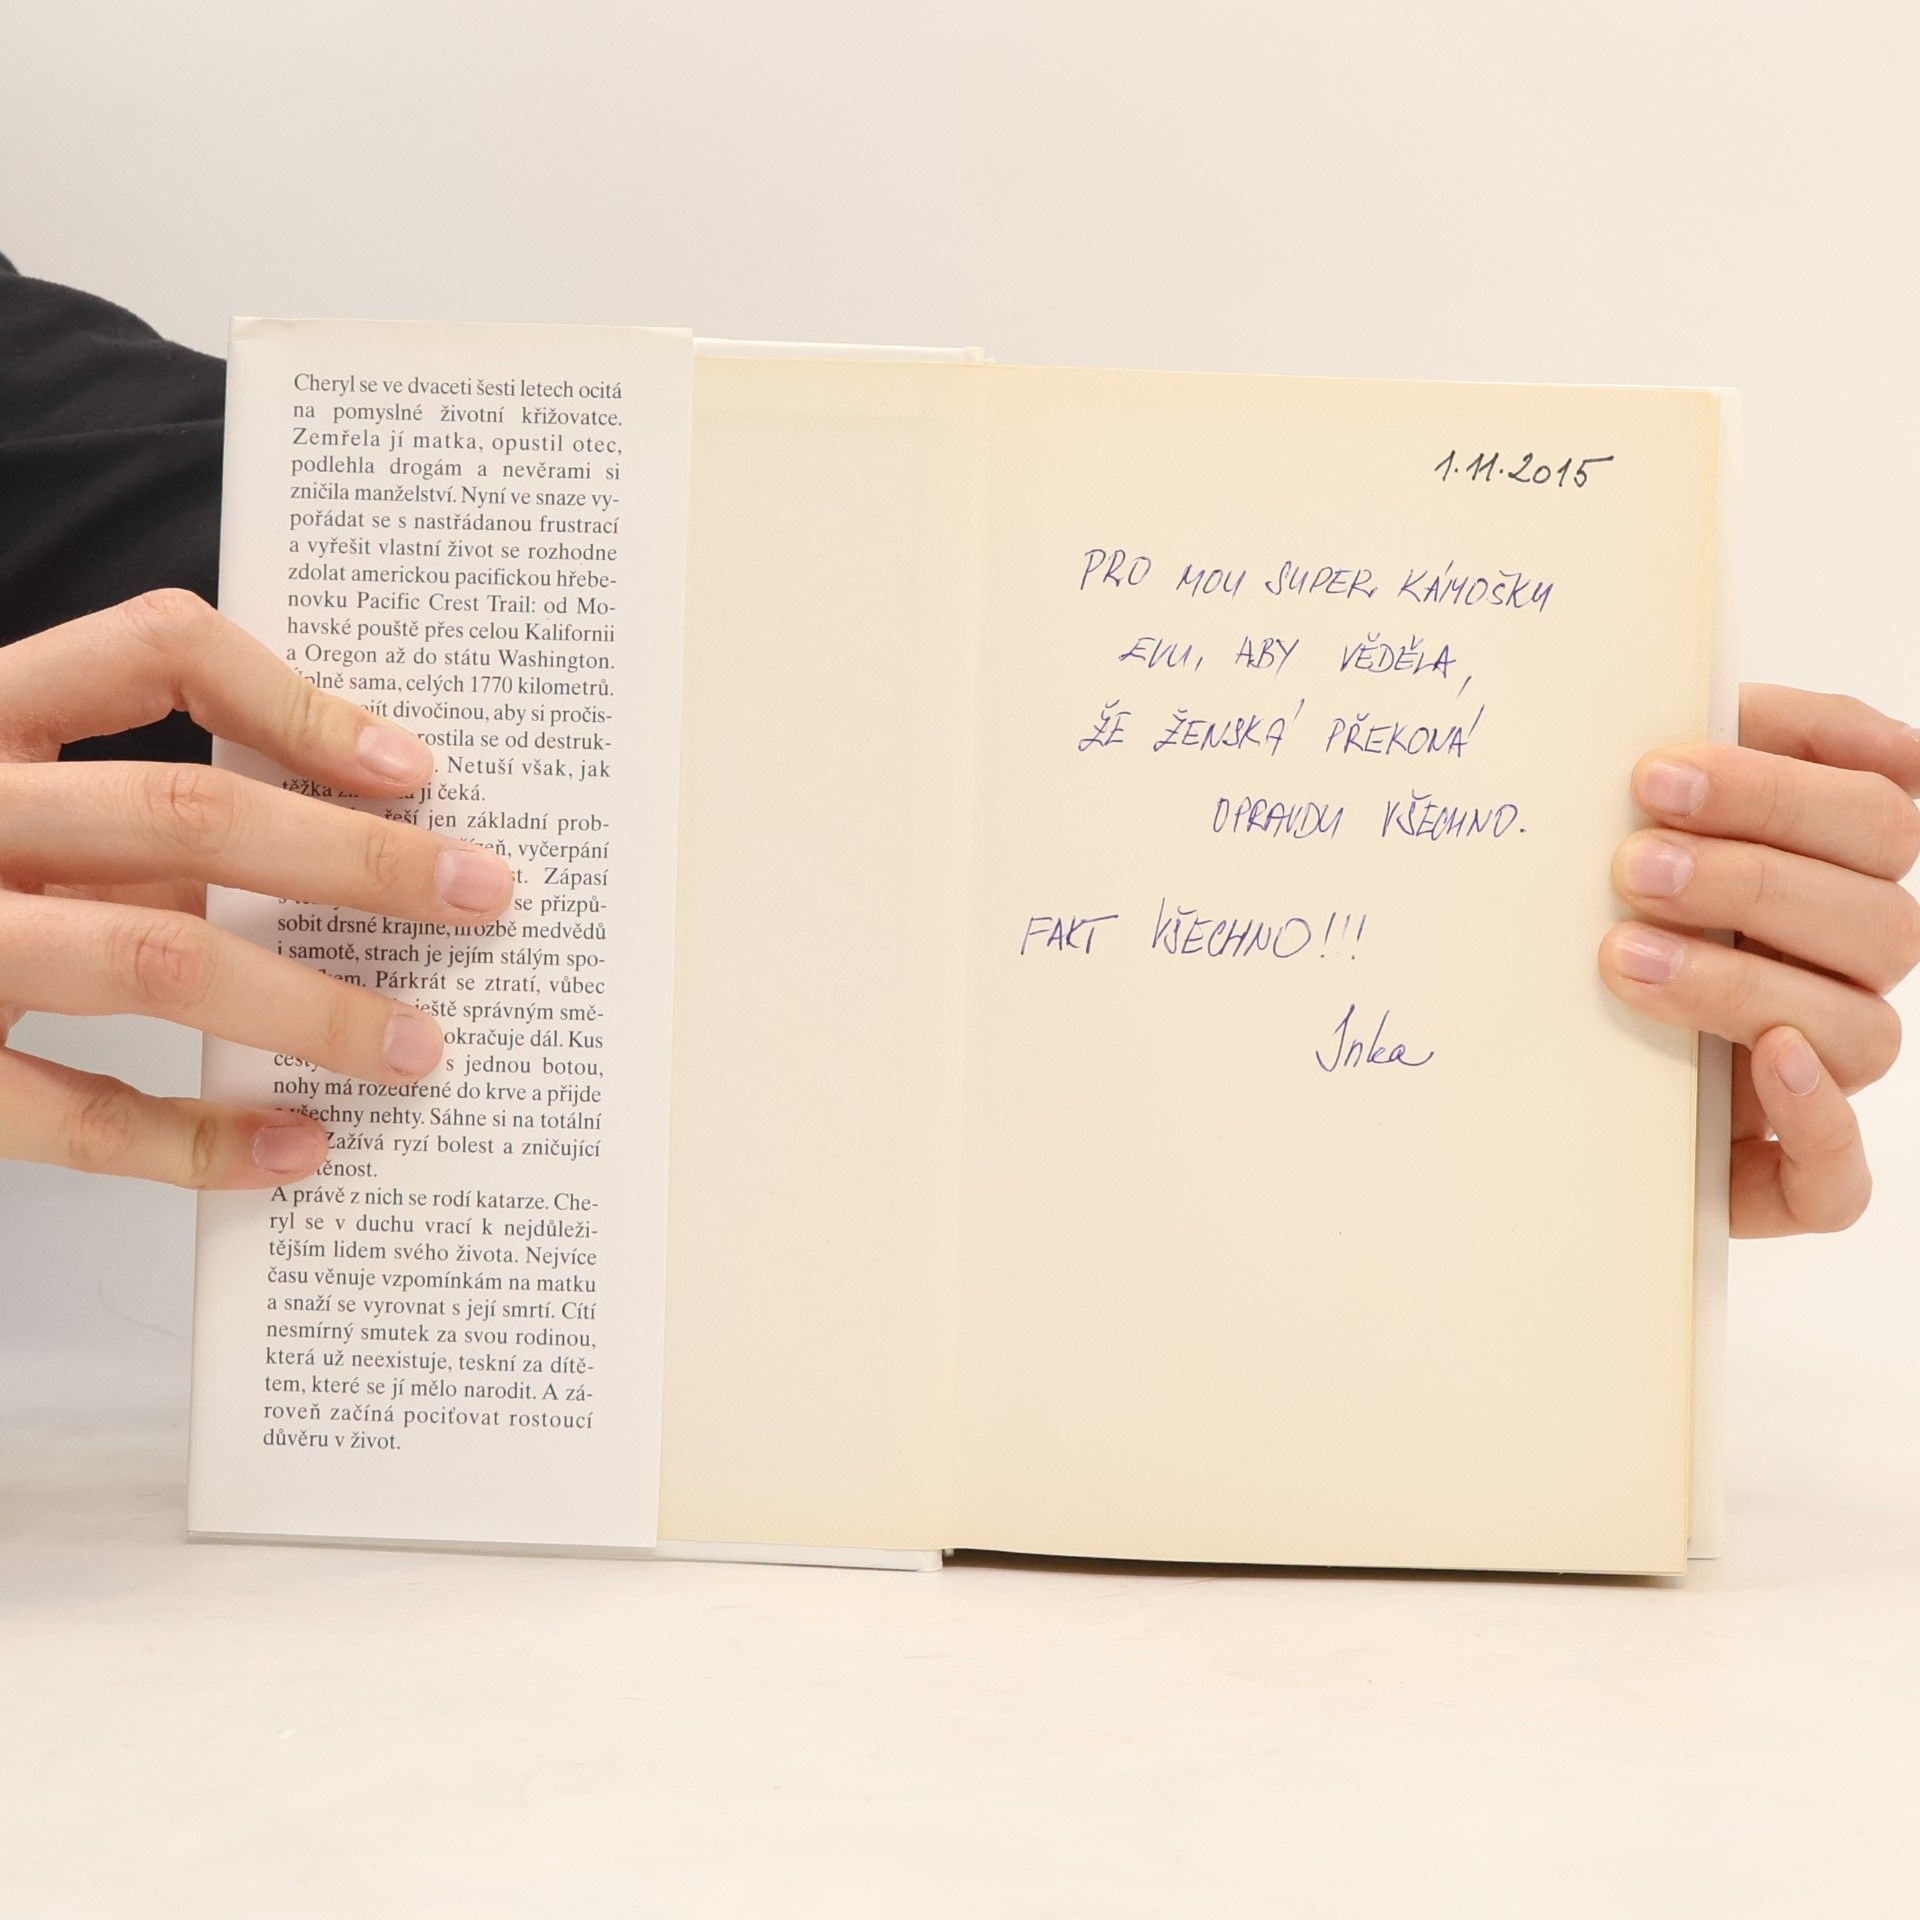 Cheryl se ve dvaceti šesti letech ocitá
na pomyslné životní křižovatce.
Zemřela jí matka, opustil otec,
podlehla drogám a nevěrami si
zničila manželství. Nyní ve snaze vy-
pořádat se s nastřádanou frustrací
a vyřešit vlastní život se rozhodne
zdolat americkou pacifickou hřebe-
novku Pacific Crest Trail: od Mo-
havské pouště přes celou Kalifornii
a Oregon až do státu Washington.
Úplně sama, celých 1770 kilometrů.
divočinou, aby si pročis-
rostila se od destruk-
. Netuší však, jak
těžká ji čeká.
řeší jen základní prob-
vyčerpání
Zápasí
se přizpů-
sobit drsné krajině, hrozbě medvědů
i samotě, strach je jejím stálým spo-
Párkrát se ztratí, vůbec
ještě správným smě-
okračuje dál. Kus
cesty s jednou botou,
nohy má rozedřené do krve a přijde
všechny nehty. Sáhne si na totální
Zažívá ryzí bolest a zničující
A právě z nich se rodí katarze. Che-
ryl se v duchu vrací k nejdůleži-
tějším lidem svého života. Nejvíce
času věnuje vzpomínkám na matku
a snaží se vyrovnat s její smrtí. Cítí
nesmírný smutek za svou rodinou,
která už neexistuje, teskní za dítě-
tem, které se jí mělo narodit. A zá-
roveň začíná pociťovat rostoucí
důvěru v život.
1.11.2015
PRO MOU SUPER KÁMOŠKU
EVU, ABY VĚDĚLA,
ŽE ŽENSKÁ PŘEKONÁ
OPRAVDU VŠECHNO.
FAKT VŠECHNO!!!
Inka